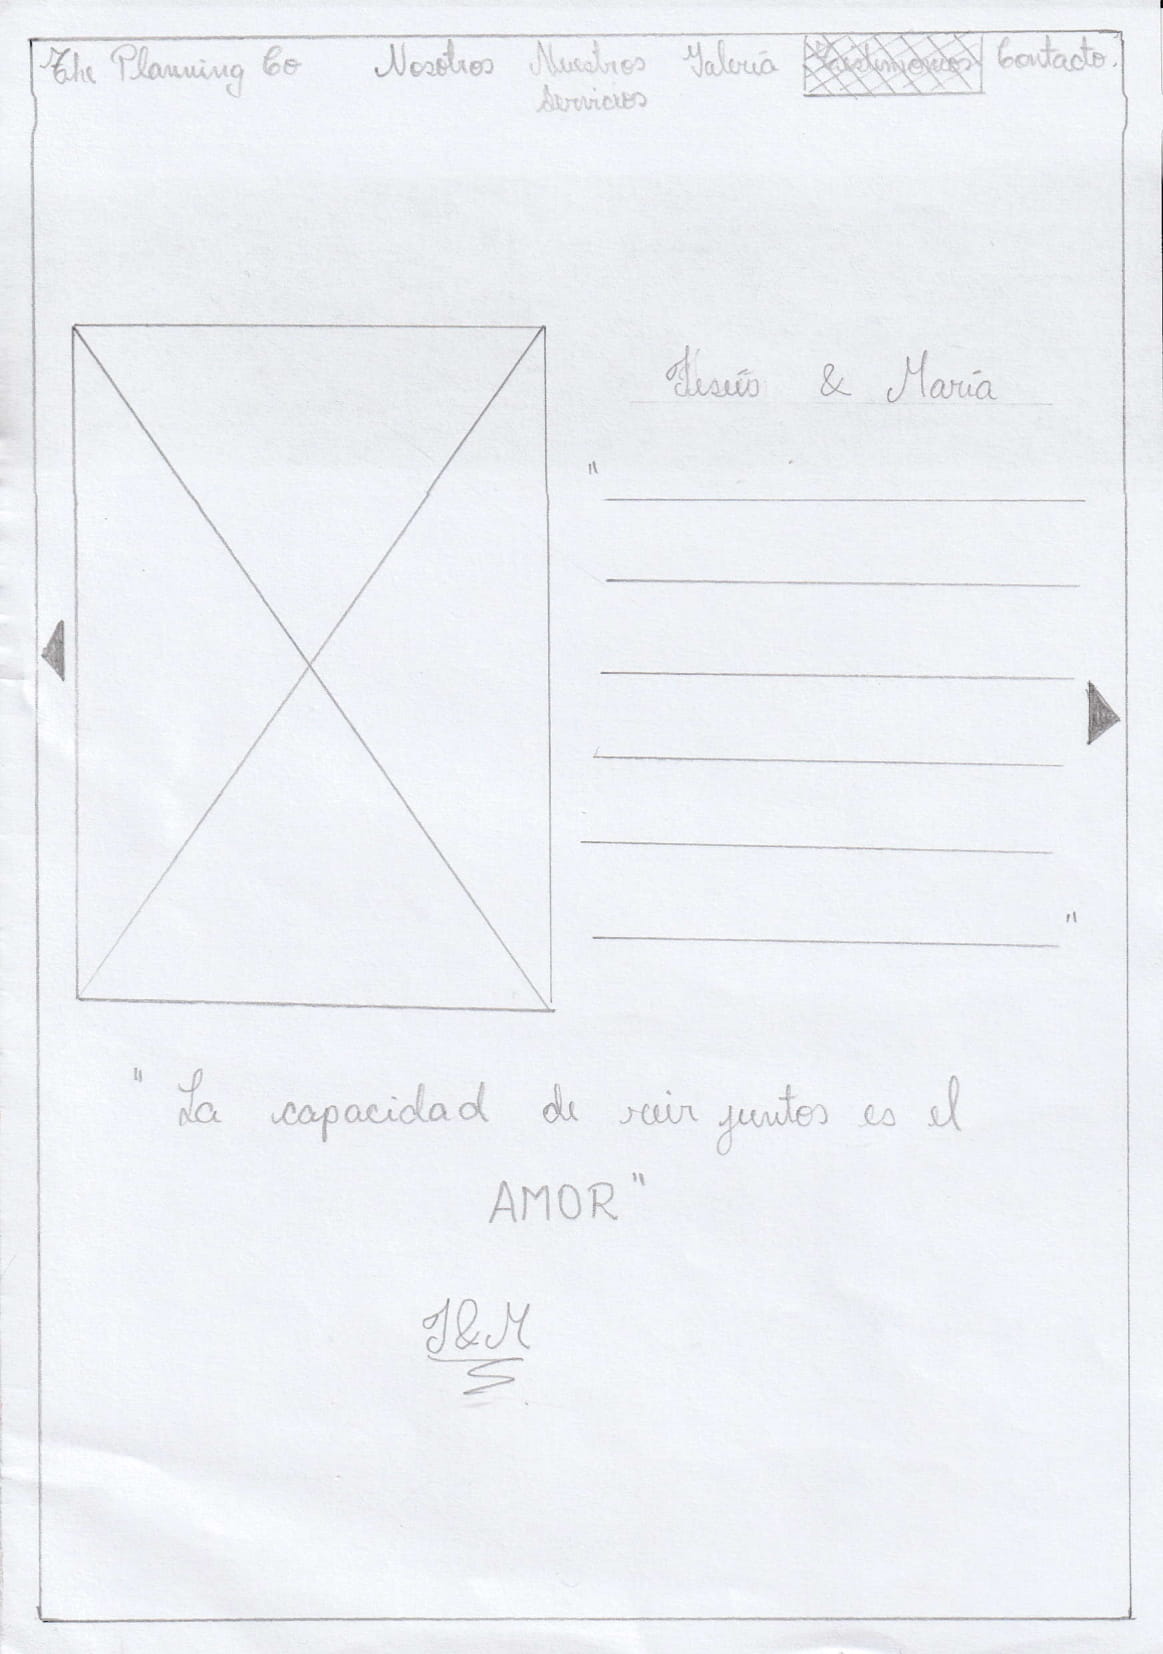 The Planning Co Nosotros Nuestros Galería Testimonios Contacto.
Servicios
Jesús & María
"
"
" La capacidad de reir juntos es el
AMOR "
J&M